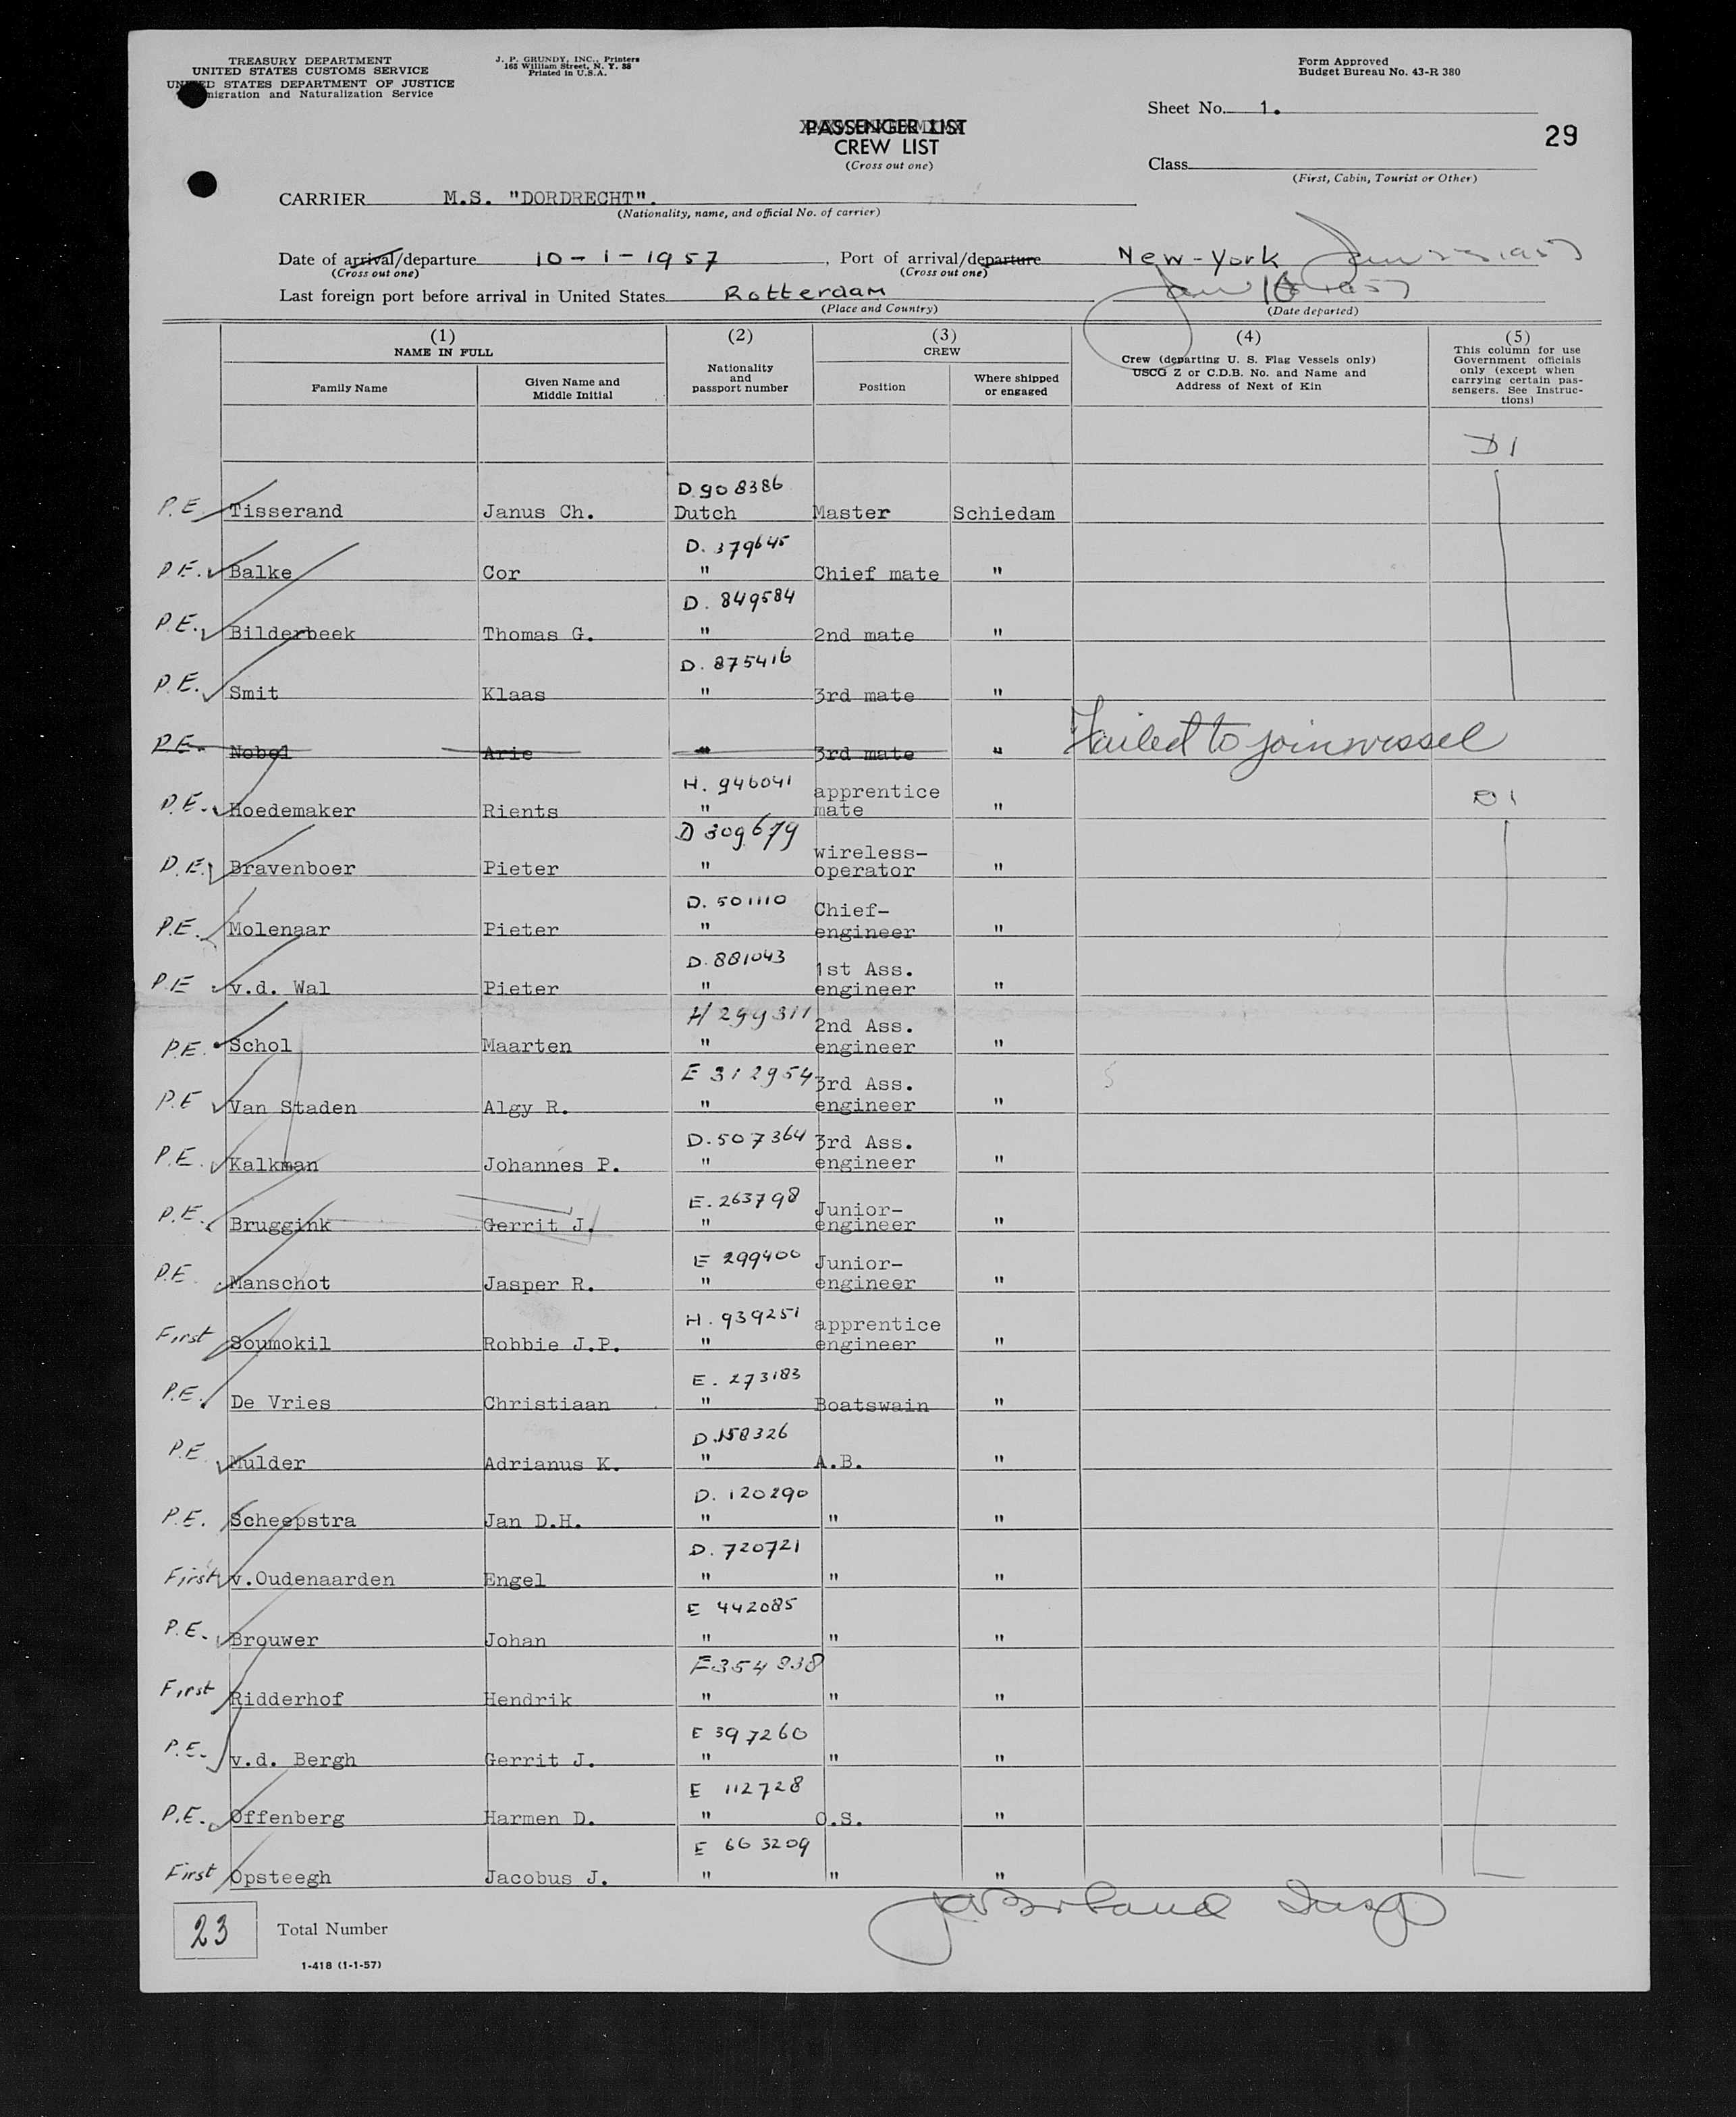 TREASURY DEPARTMENT
UNITED STATES CUSTOMS SERVICE
UNITED STATES DEPARTMENT OF JUSTICE
Immigration and Naturalization Service
J. P. GRUNDY, INC., Printers
165 William Street, N. Y. 38
Printed in U.S.A.
Form Approved
Budget Bureau No. 43-R 380
Sheet No. 1.
29
PASSENGER LIST
CREW LIST
(Cross out one)
Class
(First, Cabin, Tourist or Other)
CARRIER M.S. "DORDRECHT".
(Nationality, name, and official No. of carrier)
Date of arrival/departure 10-1-1957, Port of arrival/departure New-York Jan 1957
(Cross out one) (Cross out one)
Last foreign port before arrival in United States Rotterdam Jan 10 1957
(Place and Country) (Date departed)
(1) NAME IN FULL
Family Name
Given Name and Middle Initial
(2)
Nationality and passport number
(3) CREW
Position
Where shipped or engaged
(4)
Crew (departing U. S. Flag Vessels only)
USCG Z or C.D.B. No. and Name and
Address of Next of Kin
(5)
This column for use
Government officials
only (except when
carrying certain pas-
sengers. See Instruc-
tions)
D1
D.908386
P.E. Tisserand Janus Ch. Dutch Master Schiedam
D. 379645
P.E. Balke Cor " Chief mate "
D. 849584
P.E. Bilderbeek Thomas G. " 2nd mate "
D. 875416
P.E. Smit Klaas " 3rd mate "
P.E. Nobel Arie " 3rd mate " Failed to join vessel
H. 946041 apprentice D1
P.E. Hoedemaker Rients " mate "
D 309679 wireless-
P.E. Bravenboer Pieter " operator "
D. 501110 Chief-
P.E. Molenaar Pieter " engineer "
D.881043 1st Ass.
P.E v.d. Wal Pieter " engineer "
H 299311 2nd Ass.
P.E. Schol Maarten " engineer "
E 312954 3rd Ass.
P.E Van Staden Algy R. " engineer "
D.507364 3rd Ass.
P.E. Kalkman Johannes P. " engineer "
E.263798 Junior-
P.E. Bruggink Gerrit J. " engineer "
E 299400 Junior-
P.E. Manschot Jasper R. " engineer "
H. 939251 apprentice
First Soumokil Robbie J.P. " engineer "
E. 273183
P.E. De Vries Christiaan " Boatswain "
D.158326
P.E Mulder Adrianus K. " A.B. "
D. 120290
P.E. Scheepstra Jan D.H. " " "
D. 720721
First v.Oudenaarden Engel " " "
E 442085
P.E. Brouwer Johan " " "
E354838
First Ridderhof Hendrik " " "
E 397260
P.E. v.d. Bergh Gerrit J. " " "
E 112728
P.E. Offenberg Harmen D. " O.S. "
E 663209
First Opsteegh Jacobus J. " " "
23 Total Number
Insp
1-418 (1-1-57)